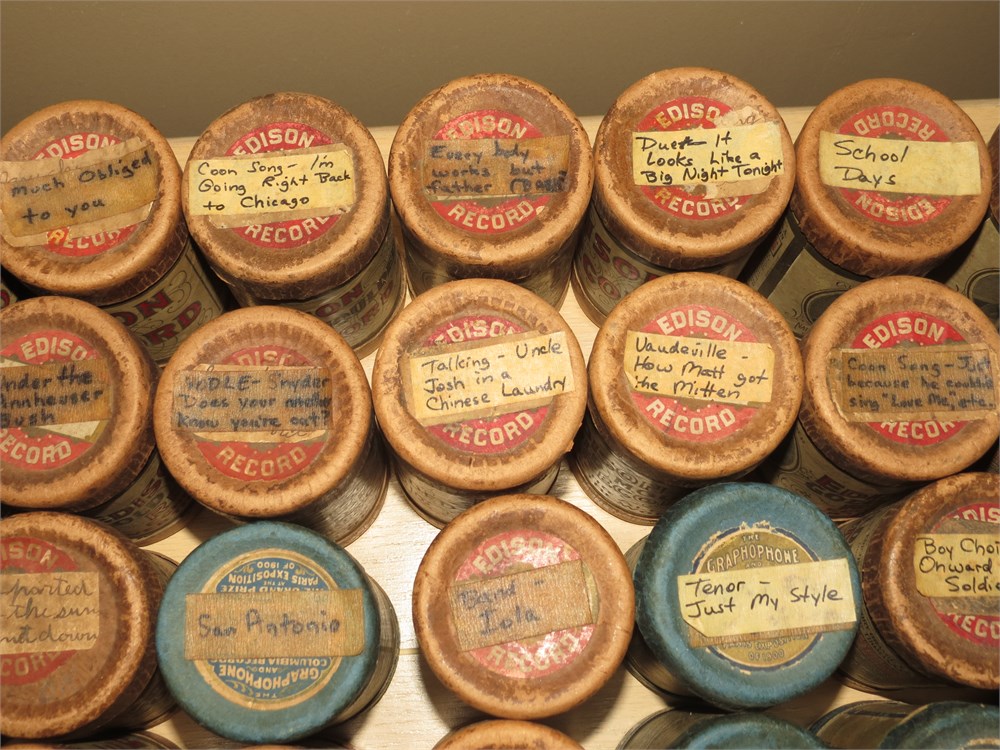 EDISON
much Obliged
to you
RECORD
EDISON
Coon Song - I'm
Going Right Back
to Chicago
RECORD
EDISON
Every body
works but
father
RECORD
EDISON
Duet - It
Looks Like a
Big Night Tonight
RECORD
RECORD
School
Days
EDISON
EDISON
Under the
Annheuser
Bush
RECORD
Snyder
Does your mother
Know you're out?
RECORD
Talking - Uncle
Josh in a
Chinese Laundry
RECORD
EDISON
Vaudeville -
How Matt got
the Mitten
RECORD
EDISON
Coon Song - Just
because he couldn't
sing "Love Me", etc.
RECORD
EDISON
the sun
down
RECORD
THE GRAND PRIZE
PARIS EXPOSITION
OF 1900
San Antonio
COLUMBIA RECORDS
AND
GRAPHOPHONE
THE
EDISON
Band -
Iola
RECORD
THE
GRAPHOPHONE
Tenor -
Just My Style
EDISON
Boy Choi
Onward
Soldie
RECORD